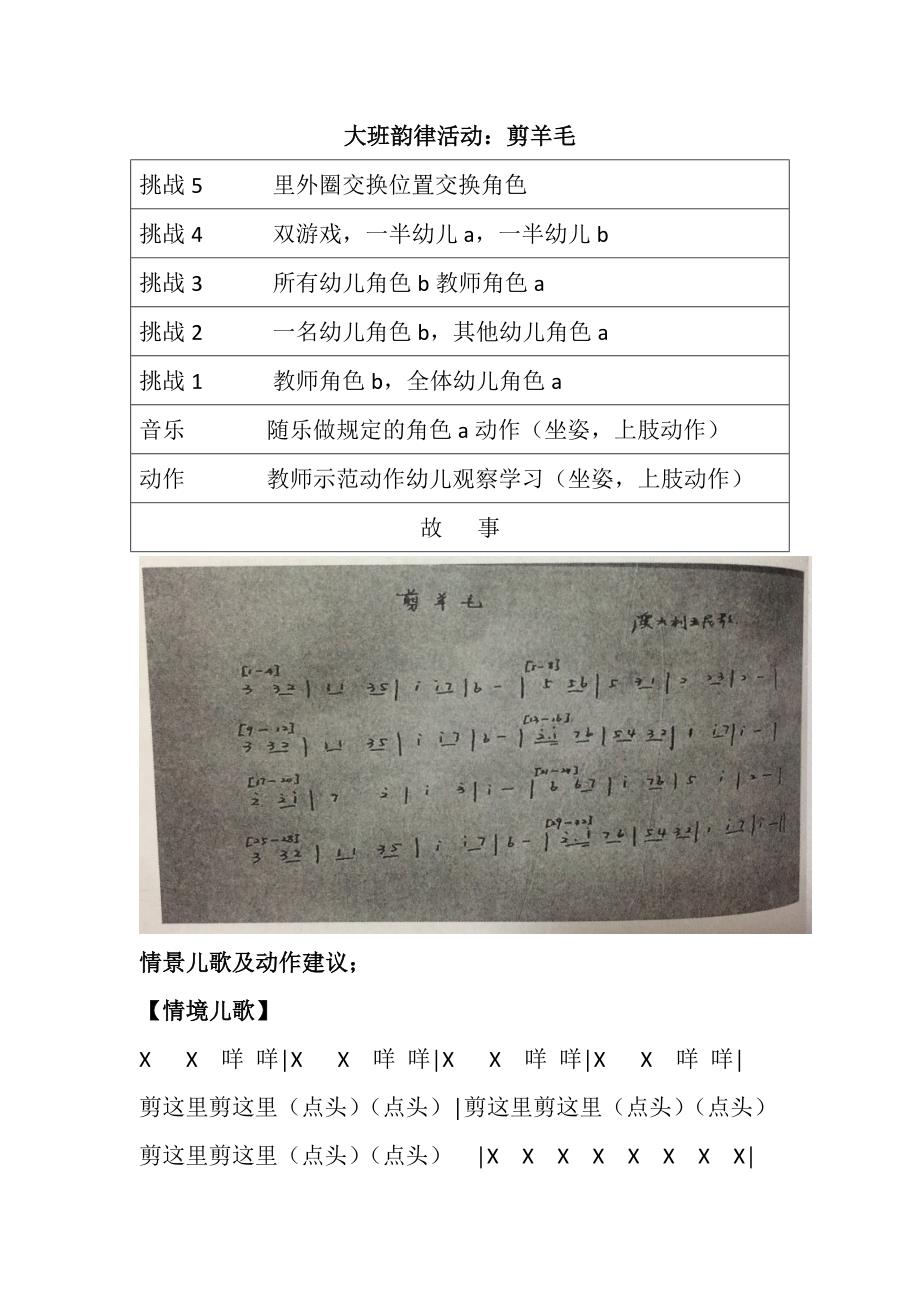 大班韵律活动：剪羊毛
挑战 5 里外圈交换位置交换角色
挑战 4 双游戏，一半幼儿 a，一半幼儿 b
挑战 3 所有幼儿角色 b 教师角色 a
挑战 2 一名幼儿角色 b，其他幼儿角色 a
挑战 1 教师角色 b，全体幼儿角色 a
音乐 随乐做规定的角色 a 动作（坐姿，上肢动作）
动作 教师示范动作幼儿观察学习（坐姿，上肢动作）
故 事
剪羊毛
澳大利亚民歌
[1-4] [5-8]
3 32 | 11 35 | i i7 | 6 - | 5 56 | 5 31 | 2 23 | 2 - |
[9-12] [13-16]
3 32 | 11 35 | i i7 | 6 - | 2.i 76 | 54 32 | 1 i7 | i - |
[17-20] [21-24]
2 2i | 7 2 | i 3 | i - | 6 67 | i 76 | 5 i | 2 - |
[25-28] [29-32]
3 32 | 11 35 | i i7 | 6 - | 2.i 76 | 54 32 | 1 i7 | i - ||
情景儿歌及动作建议；
【情境儿歌】
X X 咩 咩|X X 咩 咩|X X 咩 咩|X X 咩 咩|
剪这里剪这里（点头）（点头）|剪这里剪这里（点头）（点头）
剪这里剪这里（点头）（点头） |X X X X X X X X|